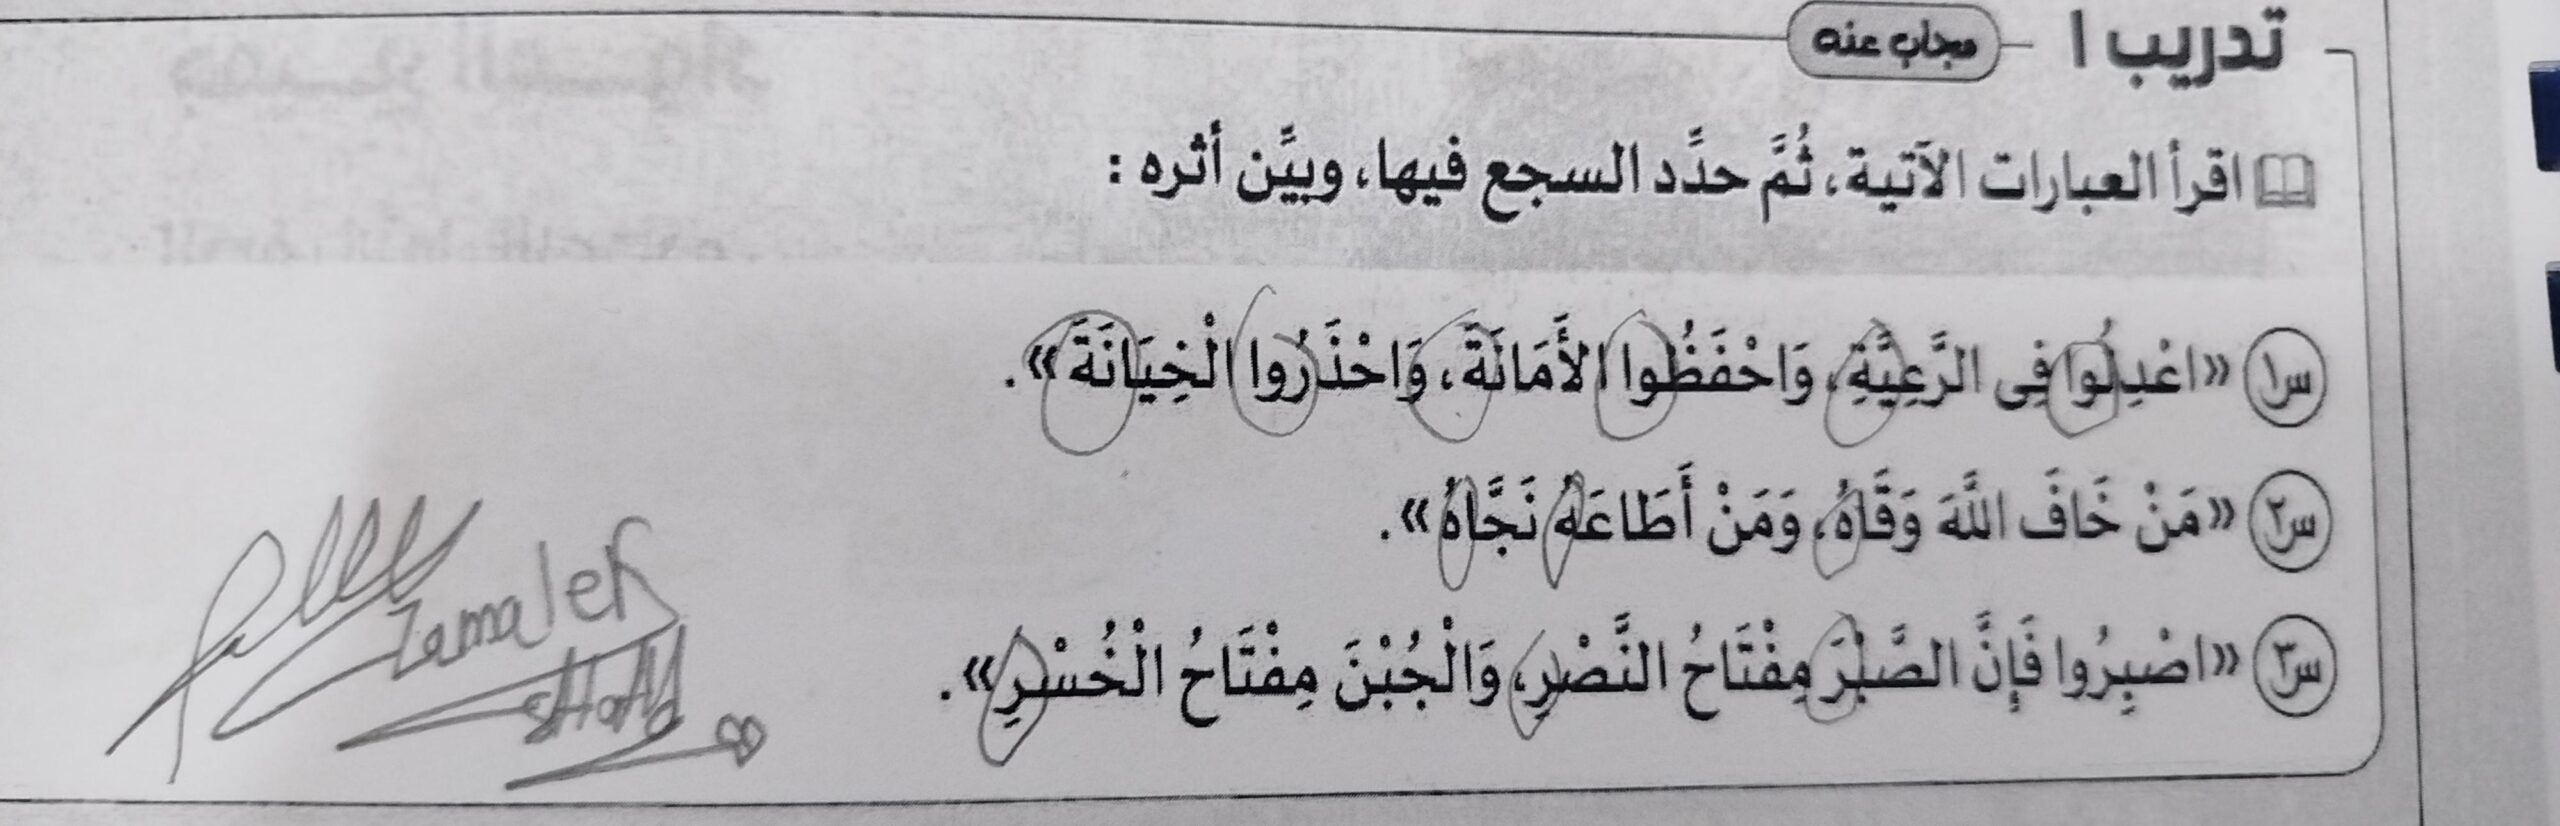 تدريب ١ مجاب عنه
اقرأ العبارات الآتية، ثُمَّ حدِّد السجع فيها، وبيِّن أثره :
س١ «اعْدِلُوا فِى الرَّعِيَّةِ، وَاحْفَظُوا الأَمَانَةَ، وَاحْذَرُوا الْخِيَانَةَ».
س٢ «مَنْ خَافَ اللَّهَ وَقَاهُ، وَمَنْ أَطَاعَهُ نَجَّاهُ».
س٣ «اصْبِرُوا فَإِنَّ الصَّبْرَ مِفْتَاحُ النَّصْرِ، وَالْجُبْنَ مِفْتَاحُ الْخُسْرِ».
Zamalek